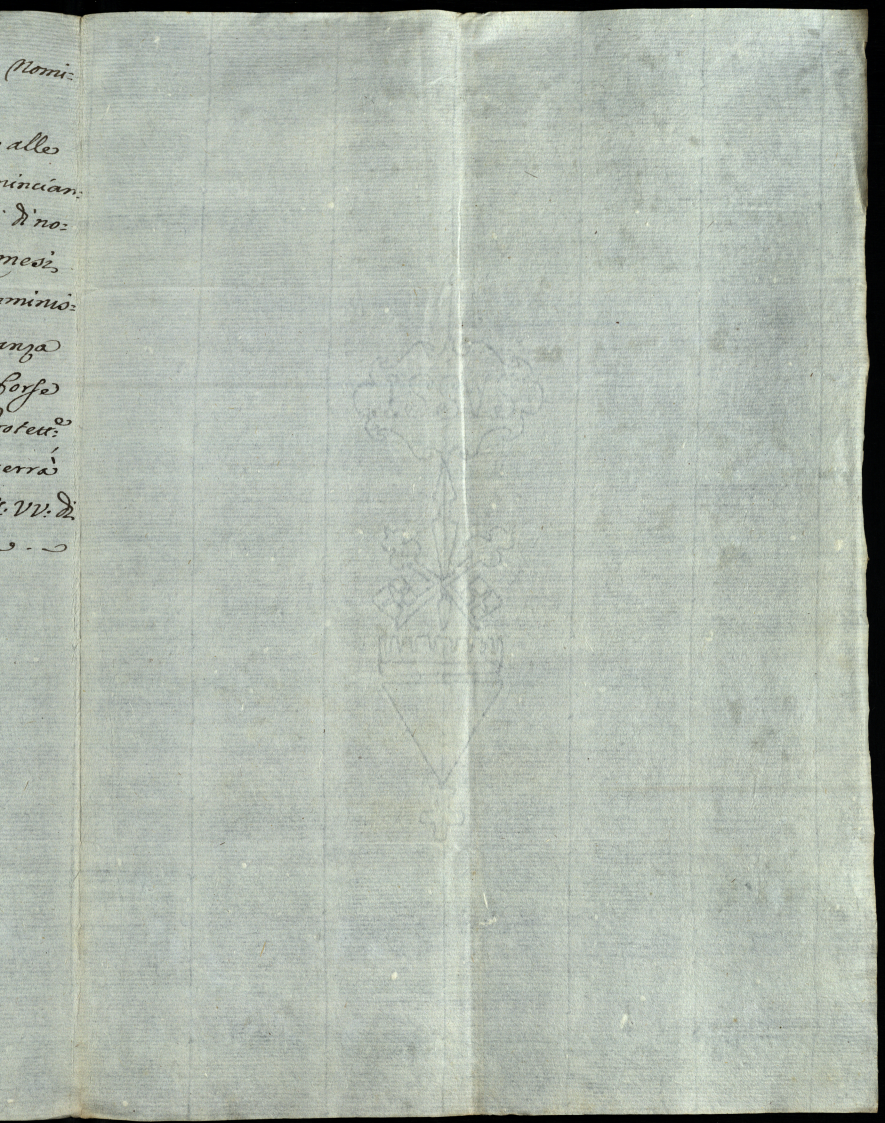 Nomi=
alle
mincian=
di no=
mesi
mminis=
anza
borse
rotett:e
errà
VV: di